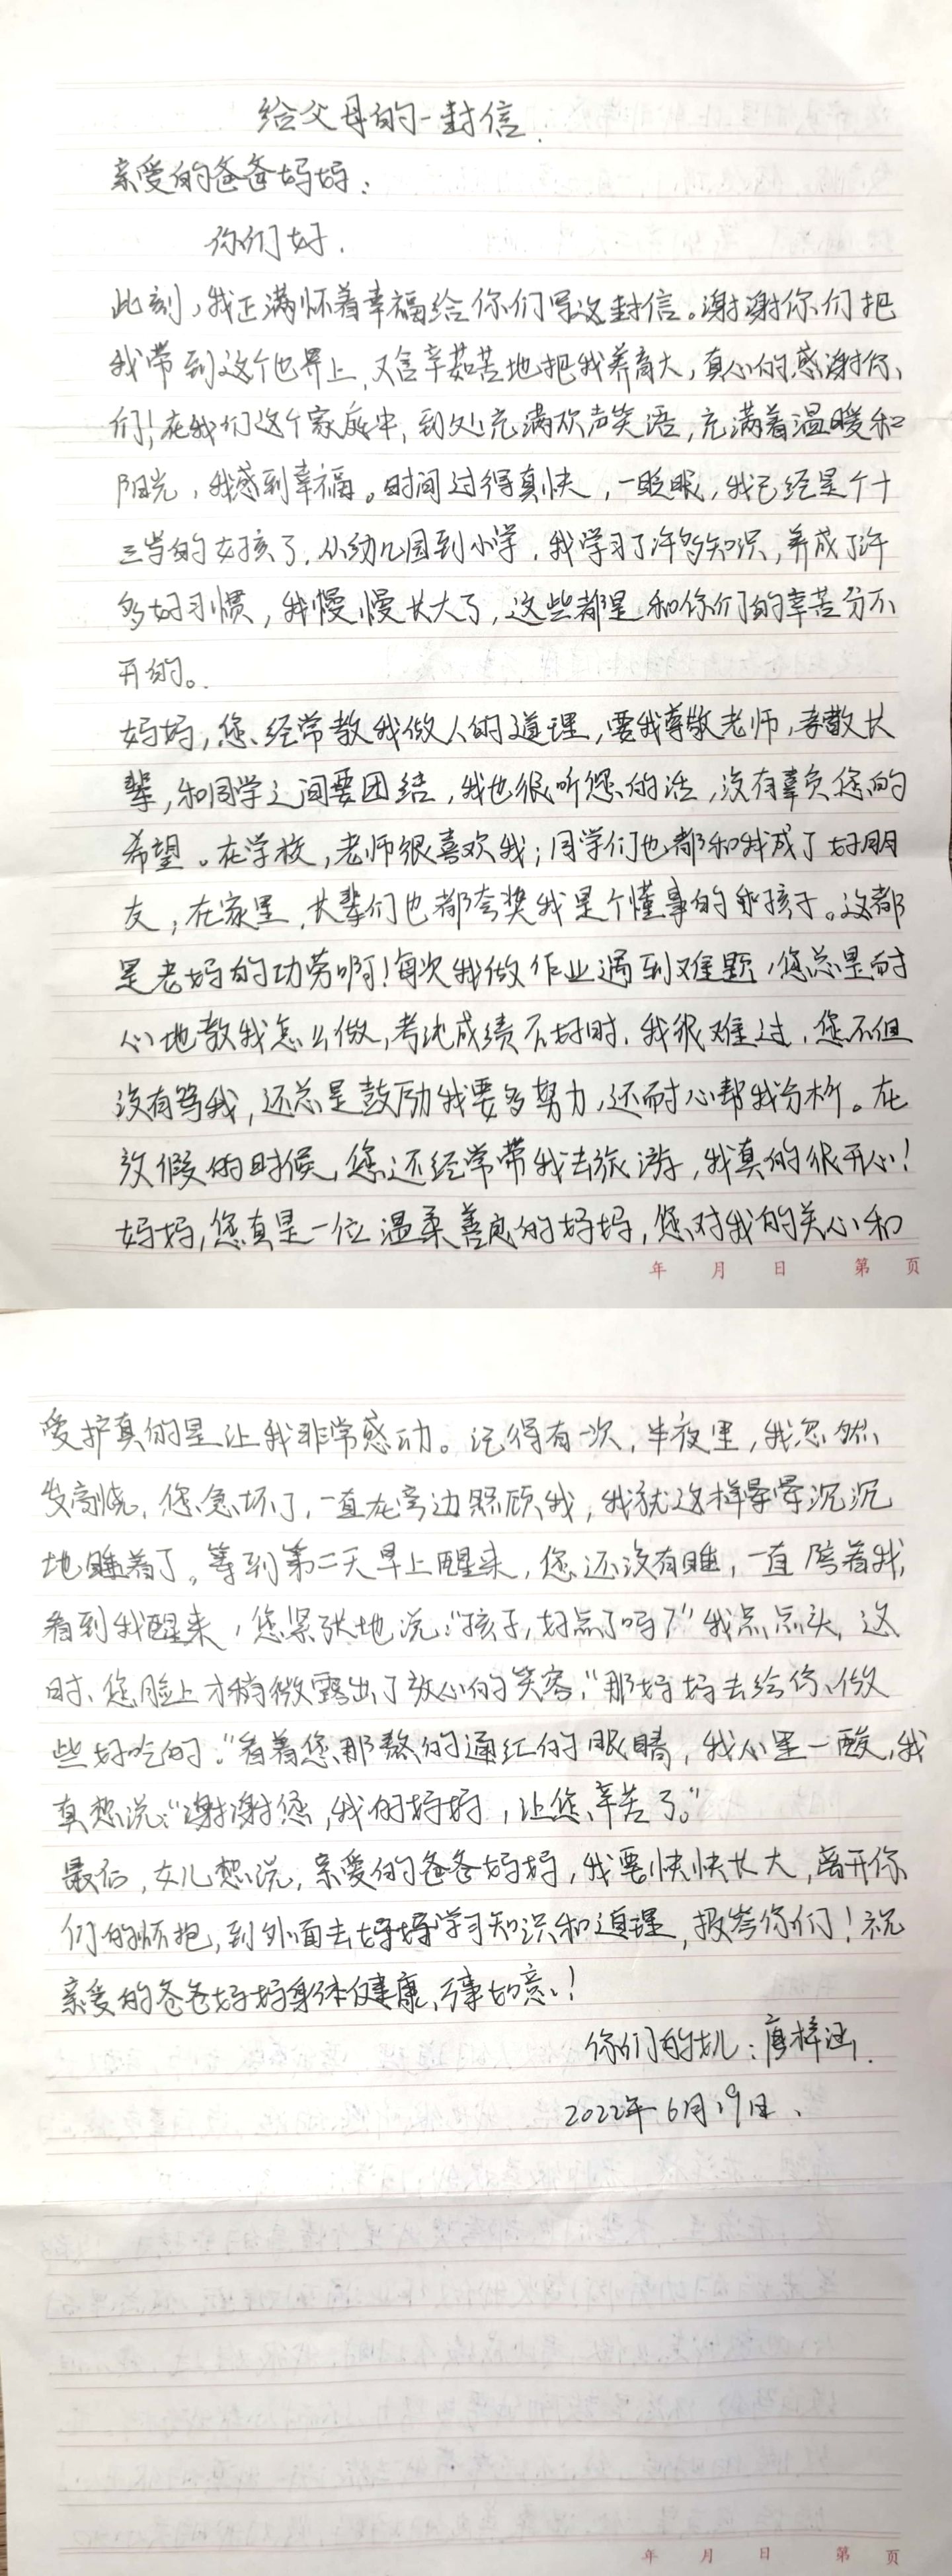 给父母的一封信.
亲爱的爸爸妈妈:
你们好.
此刻,我正满怀着幸福给你们写这封信。谢谢你们把
我带到这个世界上,又含辛茹苦地把我养育大,真心的感谢你
们!在我们这个家庭中,到处充满欢声笑语,充满着温暖和
阳光,我感到幸福。时间过得真快,一眨眼,我已经是个十
三岁的女孩了.从幼儿园到小学.我学习了许多知识,养成了许
多好习惯,我慢慢长大了,这些都是和你们的辛苦分不
开的。
妈妈,您经常教我做人的道理,要我尊敬老师,孝敬长
辈,和同学之间要团结,我也很听您的话,没有辜负您的
希望。在学校,老师很喜欢我;同学们也都和我成了好朋
友,在家里,长辈们也都夸奖我是个懂事的乖孩子。这都
是老妈的功劳啊!每次我做作业遇到难题,您总是耐
心地教我怎么做,考试成绩不好时.我很难过,您不但
没有骂我,还总是鼓励我要多努力,还耐心帮我分析。在
放假的时候,您还经常带我去旅游,我真的很开心!
妈妈,您真是一位温柔善良的妈妈,您对我的关心和
年 月 日 第 页
爱护真的是让我非常感动。记得有一次,半夜里,我忽然
发高烧,您急坏了,一直在旁边照顾我,我就这样晕晕沉沉
地睡着了。等到第二天早上醒来,您还没有睡,一直陪着我,
看到我醒来,您紧张地说:“孩子,好点了吗?”我点点头,这
时、您脸上才稍微露出了放心的笑容,“那妈妈去给你做
些好吃的.”看着您那熬的通红的眼睛,我心里一酸,我
真想说:“谢谢您,我的妈妈,让您辛苦了。”
最后,女儿想说,亲爱的爸爸妈妈,我要快快长大,离开你
们的怀抱,到外面去好好学习知识和道理,报答你们!祝
亲爱的爸爸妈妈身体健康、万事如意!
你们的女儿:唐梓涵.
2022年6月19日.
年 月 日 第 页